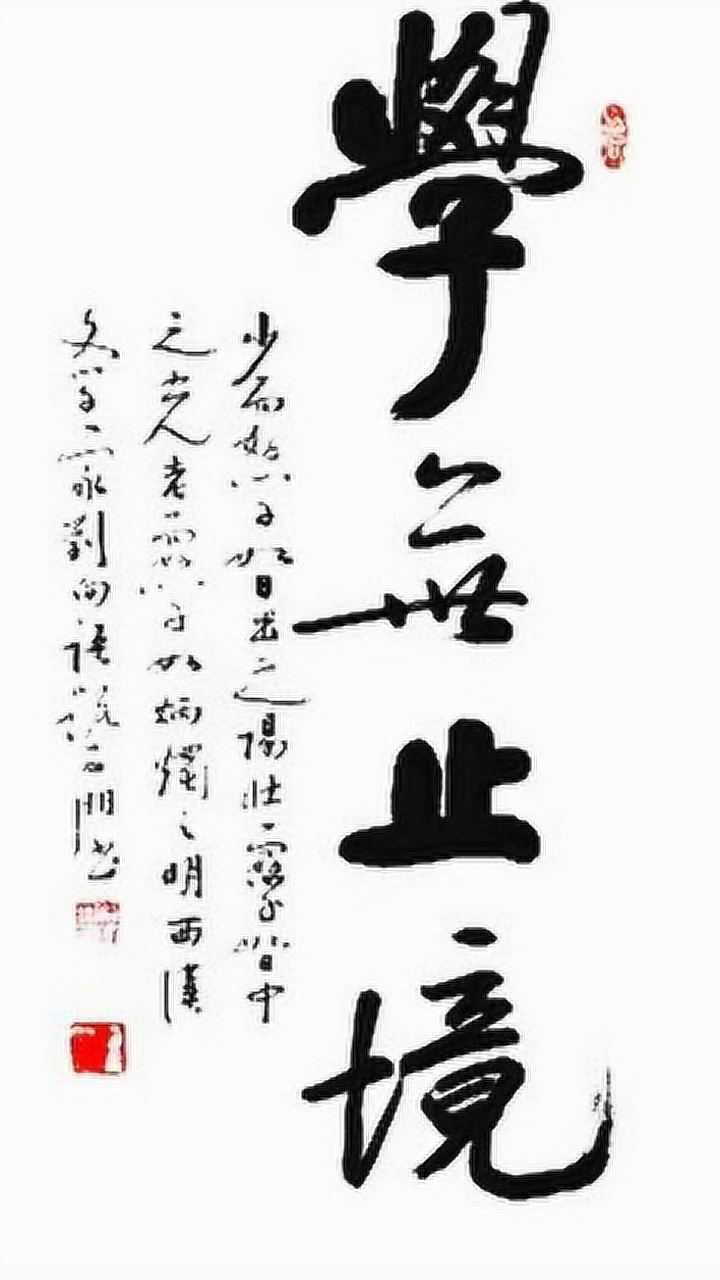 學無止境
少而好學如日出之陽壯而好學如日中
之光老而好學如炳燭之明西漢
文學家劉向語